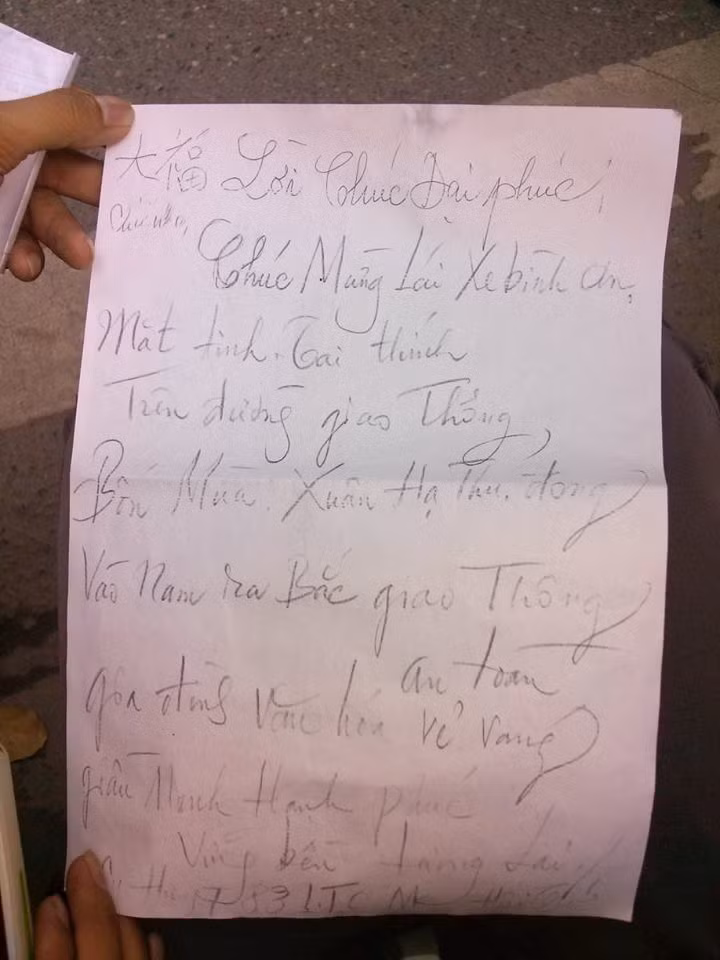 大福 Lời Chúc Đại phúc,
Chúc Mừng Lái Xe bình an,
Mắt tinh. Tai thính
Trên đường giao Thông,
Bốn Mùa. Xuân Hạ Thu. đông
Vào Nam ra Bắc giao Thông
an toàn
gia đình văn hóa vẻ vang
giàu Mạnh Hạnh phúc
Vững bền tương Lai